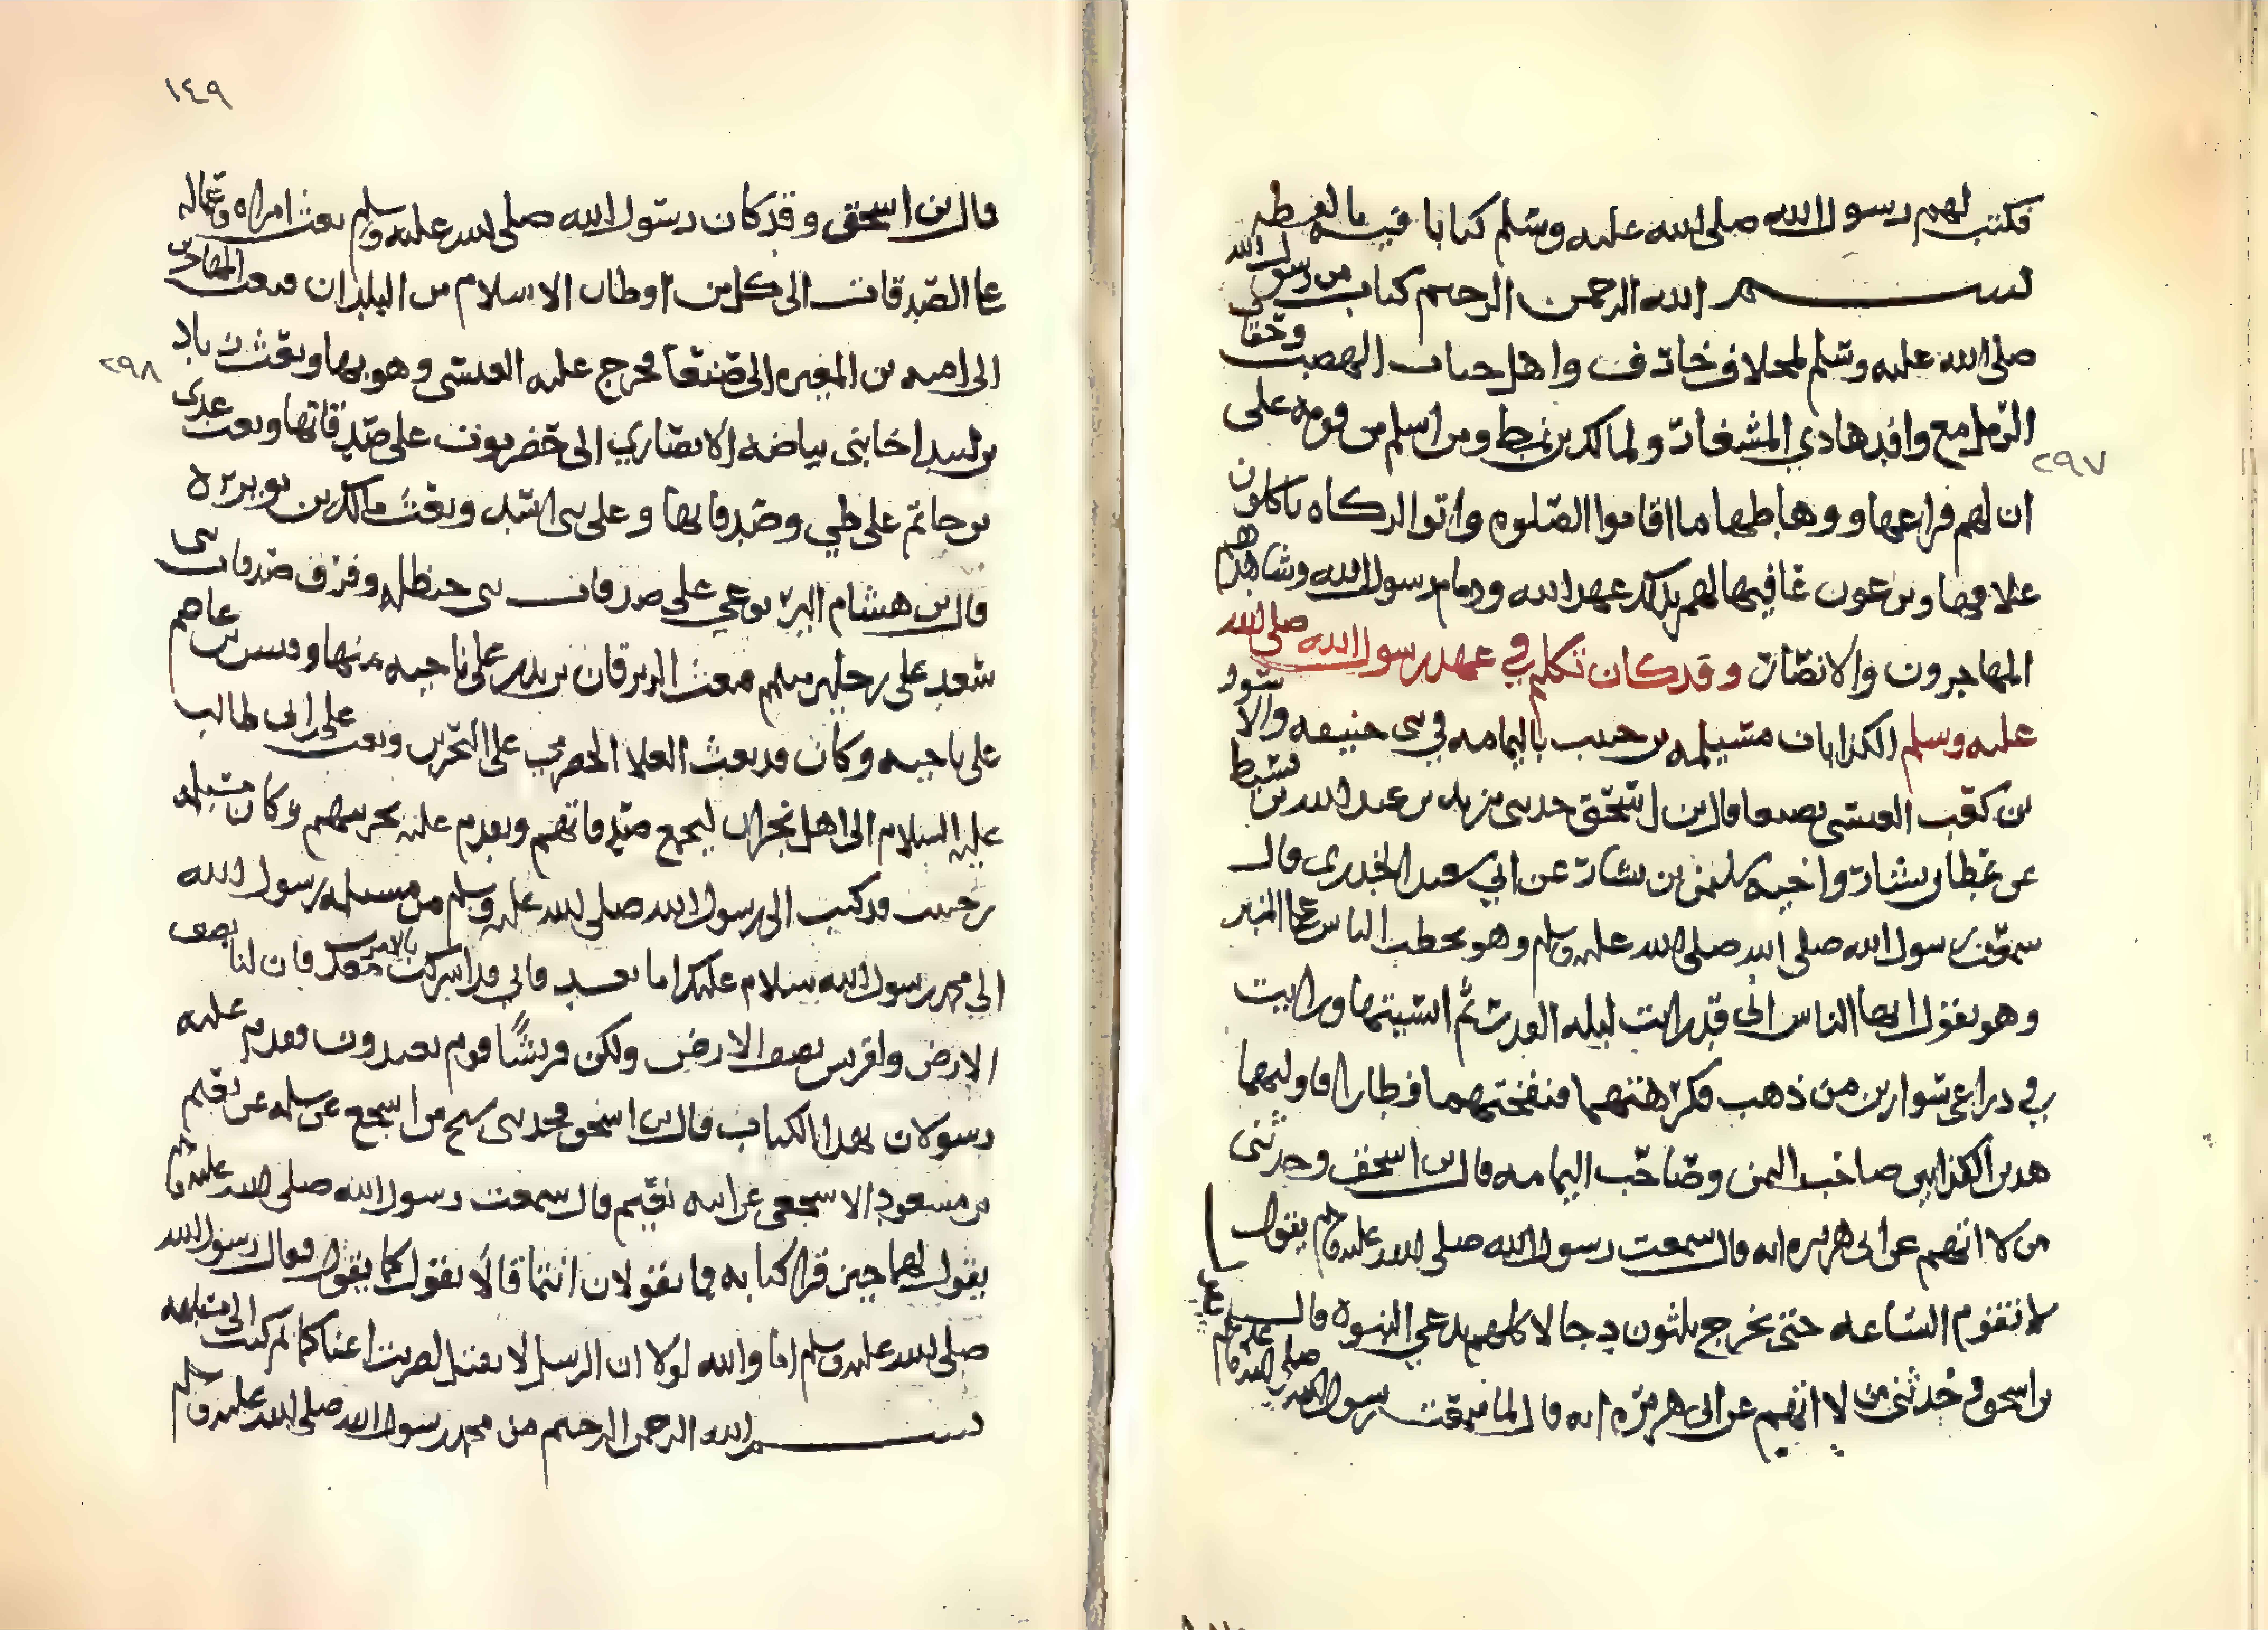 ٢٩٧
فكتب لهم رسول الله صلى الله عليه وسلم كتابا فيه
بسم الله الرحمن الرحيم كتاب من رسول الله
صلى الله عليه وسلم لمخلاف خارف واهل جناب الهضب وحقاف
الرمل مع وافدها ذي المشعار ولمالك بن نمط ومن اسلم من قومه على
ان لهم فراعها ووهاطها ما اقاموا الصلوه واتوا الزكاه ياكلون
علافها ويرعون عافيها لهم بذلك عهد الله وذمام رسول الله وشاهدهم
المهاجرون والانصار وقد كان تكلم في عهد رسول الله صلى الله
عليه وسلم الكذابان مسيلمه بن حبيب باليمامه في بنى حنيفه والاسود
بن كعب العنسى بصنعا قال بن اسحق حدثنى يزيد بن عبد الله بن قسيط
عن عطا بن يسار واخيه سليمن بن يسار عن ابي سعيد الخدري قال
سمعت رسول الله صلى الله صلى الله عليه وسلم وهو يخطب الناس على المنبر
وهو يقول ايها الناس انى قد رايت ليله القدر ثم انسيتها ورايت
في ذراعى سوارين من ذهب فكرهتهما فنفختهما فطارا فاولتهما
هذين الكذابين صاحب اليمن وصاحب اليمامه قال بن اسحق وحدثنى
من لا اتهم عن ابى هريره انه قال سمعت رسول الله صلى الله عليه وسلم يقول
لا تقوم الساعه حتى يخرج ثلثون دجالا كلهم يدعي النبوه قال
بن اسحق وحدثنى من لا اتهم عن ابى هريره انه قال رسول الله صلى الله عليه وسلم
١٤٩
٢٩٨
قال بن اسحق وقد كان رسول الله صلى الله عليه وسلم بعث امراه وعماله
على الصدقات الى كل من اوطا الاسلام من البلدان فبعث المهاجر بن
ابى اميه بن المغيره الى صنعا فخرج عليه العنسى وهو بها وبعث زياد
بن لبيد اخا بنى بياضه الانصاري الى حضرموت على صدقاتها وبعث عدى
بن حاتم على طي وصدقاتها وعلى بنى اسد وبعث مالك بن نويره
قال بن هشام اليربوعي على صدقات بنى حنظله وفرق صدقات بنى
سعد على رجلين منهم فبعث الزبرقان بن بدر على ناحيه منها وقيس بن عاصم
على ناحيه وكان قد بعث العلا الحضرمي على البحرين وبعث على بن ابى طالب
عليه السلام الى اهل نجران ليجمع صدقاتهم ويقدم عليه بجزيتهم وكان مسيلمه
بن حبيب قد كتب الى رسول الله صلى الله عليه وسلم من مسيلمه رسول الله
الى محمد رسول الله سلام عليك اما بعد فانى قد اشركت بالامر معك فان لنا نصف
الارض ولقريش نصف الارض ولكن قريشا قوم يعتدون فقدم عليه
رسولان بهذا الكتاب قال بن اسحق فحدثنى شيخ من اشجع عن سلمه عن نعيم
بن مسعود الاشجعى عن ابيه نعيم قال سمعت رسول الله صلى الله عليه وسلم
يقول لهما حين قرا كتابه فما تقولان انتما قالا نقول كما يقول فقال رسول الله
صلى الله عليه وسلم اما والله لولا ان الرسل لا تقتل لضربت اعناقكما ثم كتب الى مسيلمه
بسم الله الرحمن الرحيم من محمد رسول الله صلى الله عليه وسلم